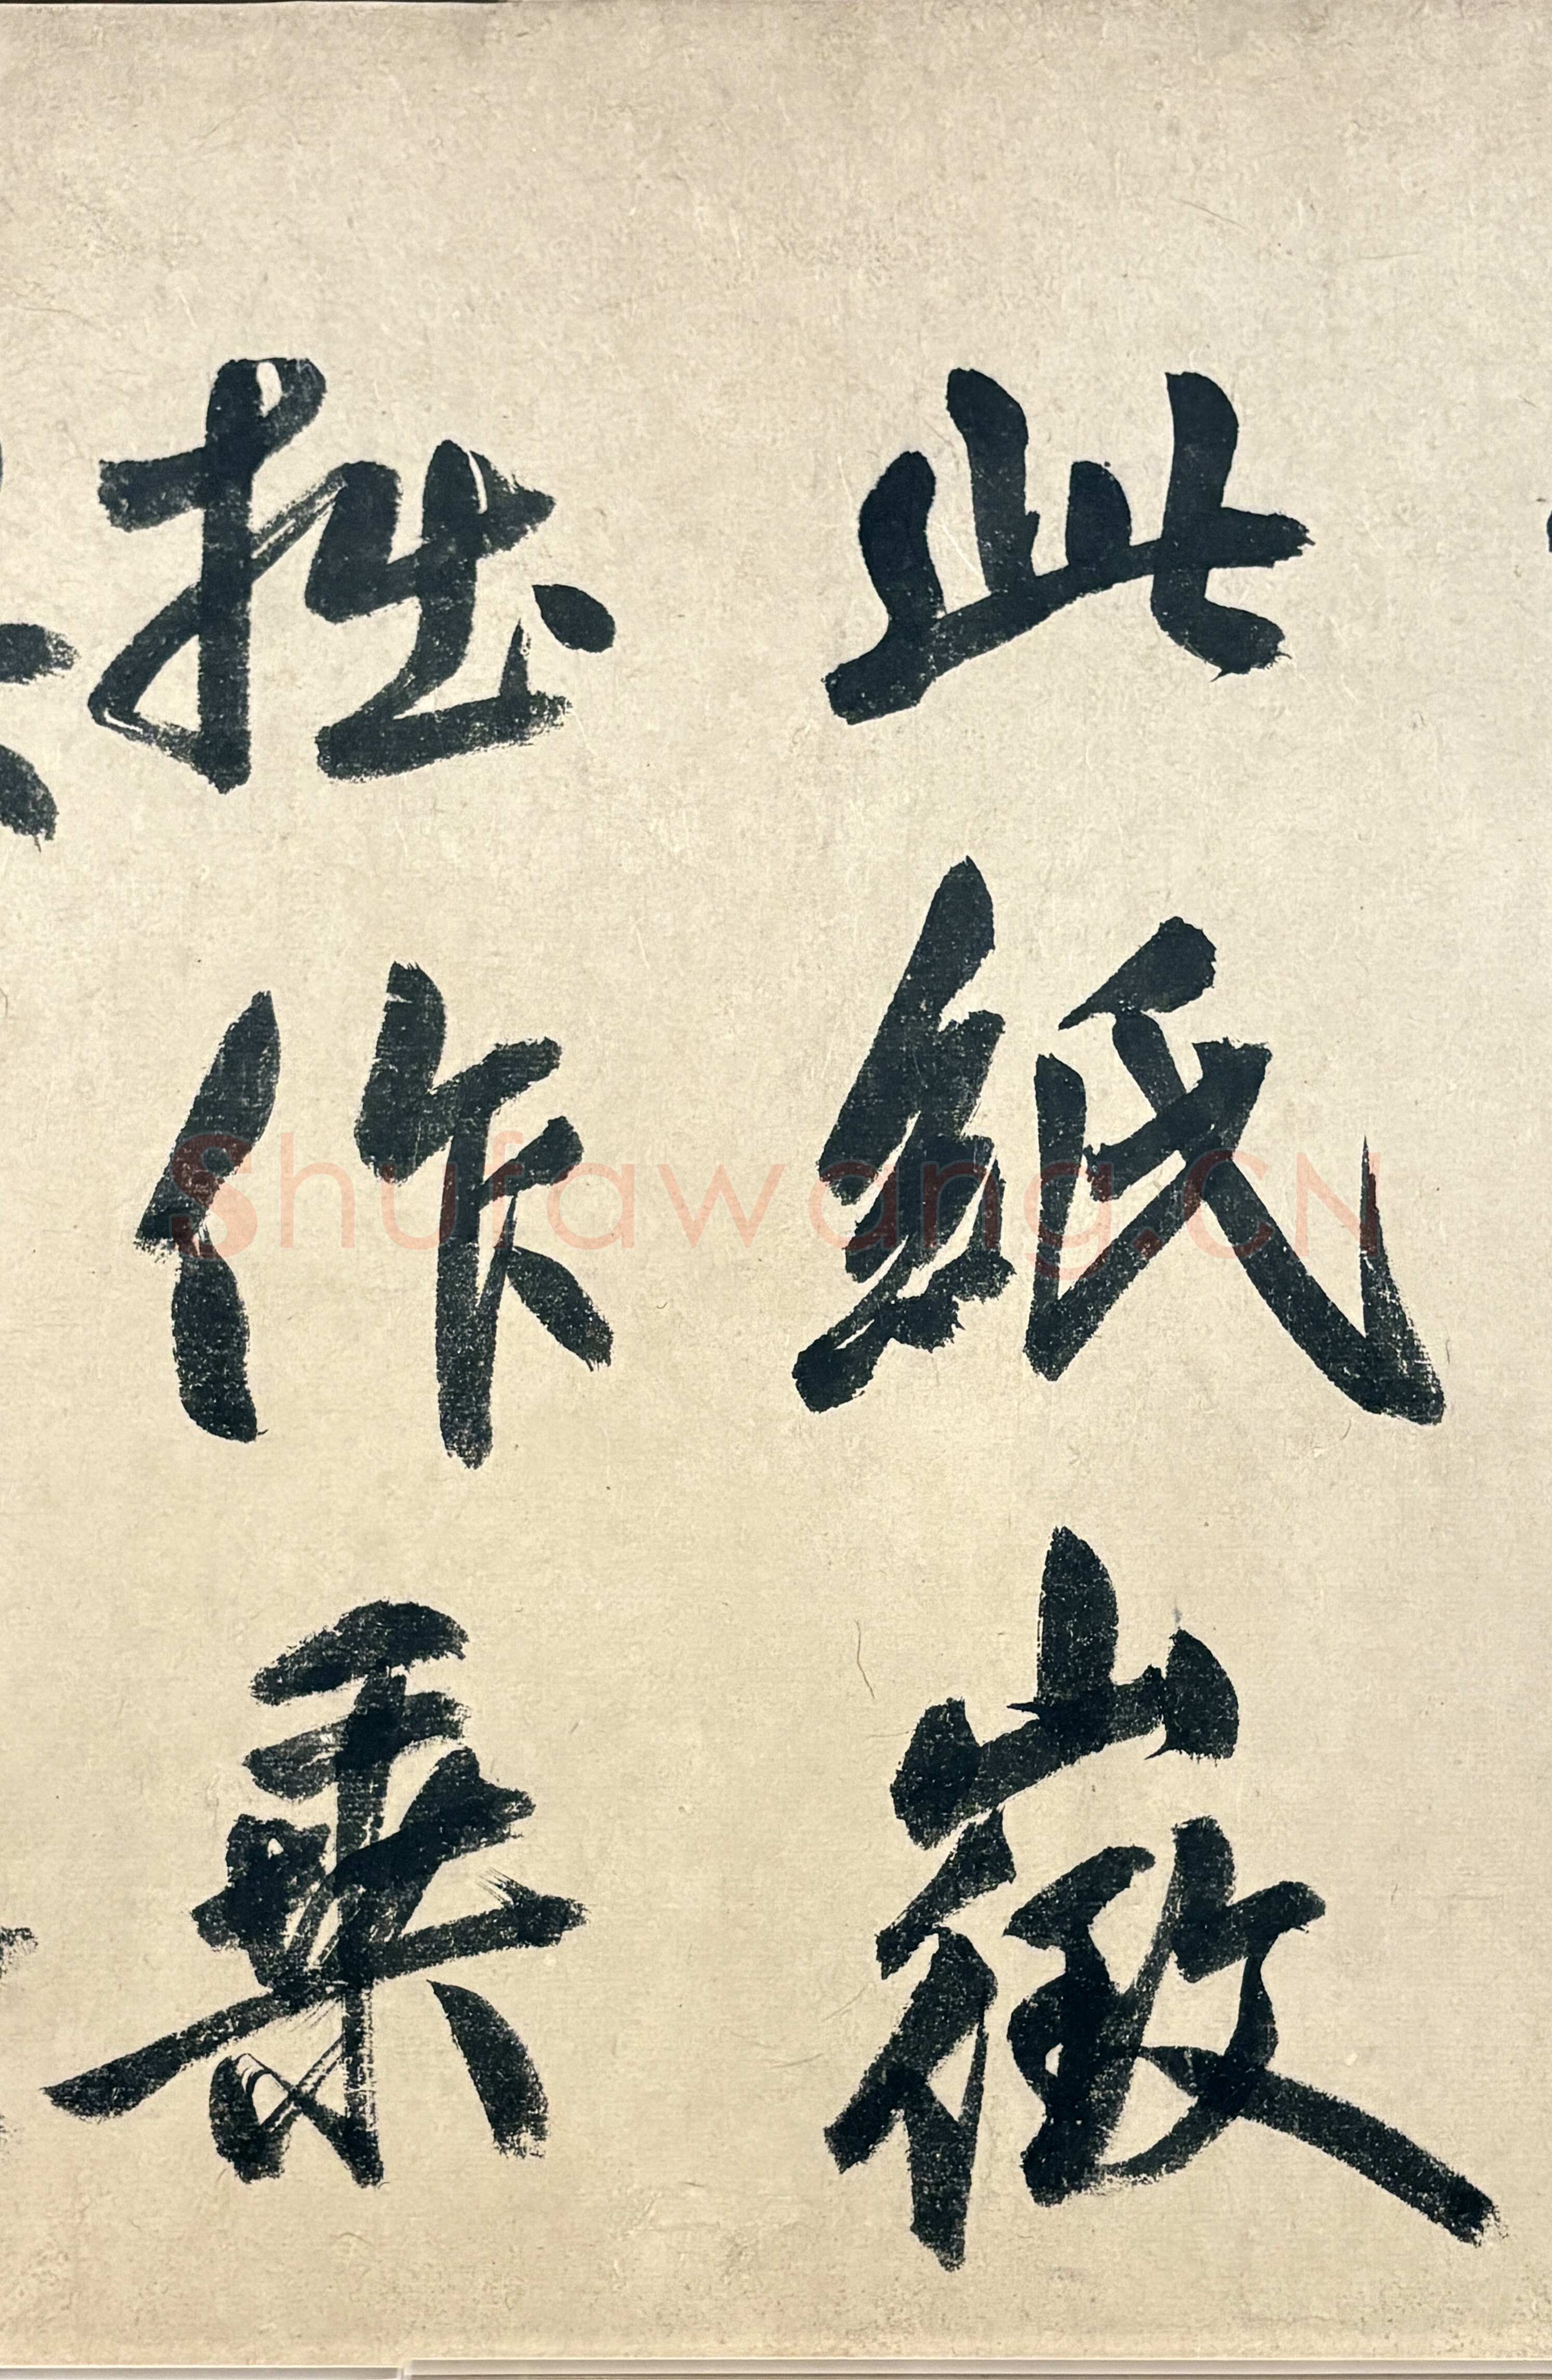 此紙徵
拙作乘
Shufawang.CN